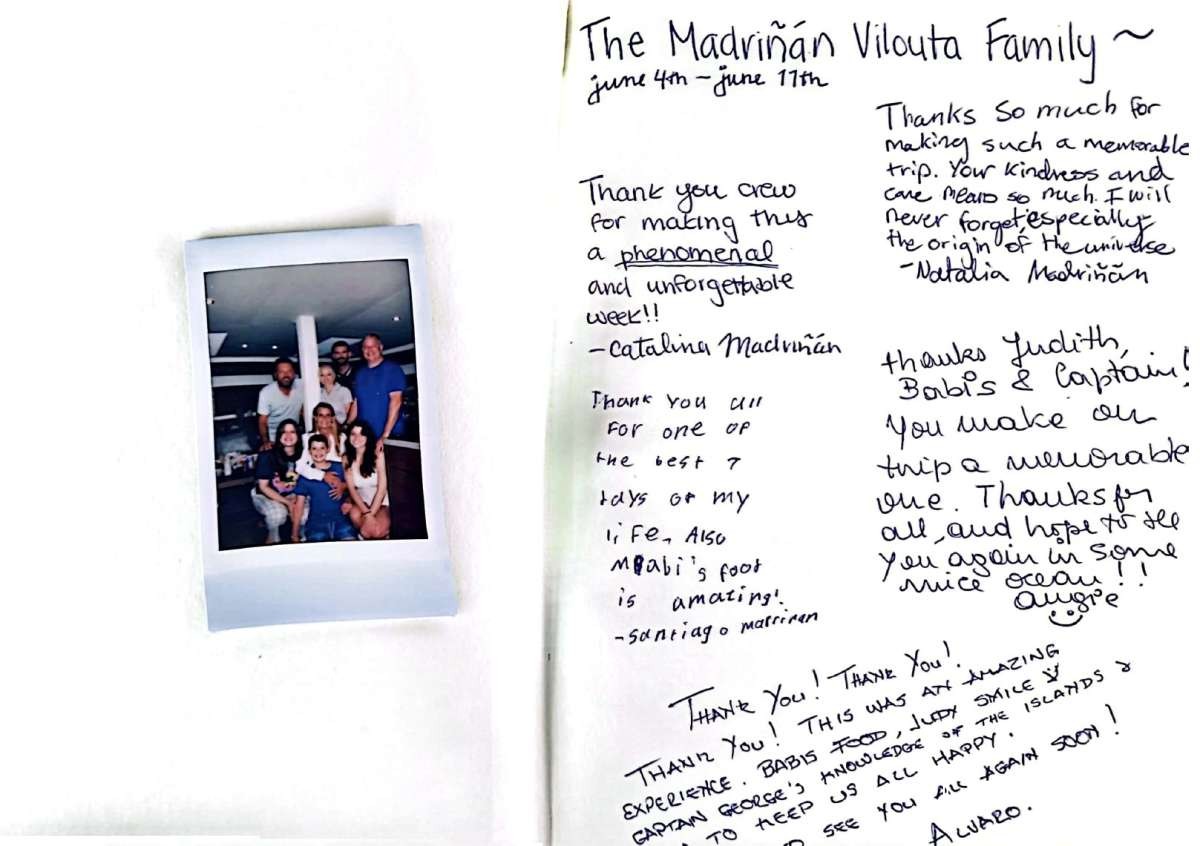 The Madriñán Vilouta Family ~
june 4th - june 11th
Thank you crew
for making this
a phenomenal
and unforgettable
week!!
- Catalina Madriñán
Thank you all
for one of
the best 7
days of my
life, Also
Babi's food
is amazing!
- Santiago
Thanks so much for
making such a memorable
trip. Your kindness and
care means so much. I will
never forget, especially
the origin of the universe
- Natalia Madriñán
thanks Judith,
Babis & Captain!
You make our
trip a memorable
one. Thanks for
all, and hope to see
you again in some
nice ocean!!
Angie
THANK YOU! THANK YOU!
THANK YOU! THIS WAS AN AMAZING
EXPERIENCE. BABIS FOOD, JUDY SMILE
CAPTAIN GEORGE'S KNOWLEDGE OF THE ISLANDS &
TO KEEP US ALL HAPPY.
SEE YOU ALL AGAIN SOON!
ALVARO.